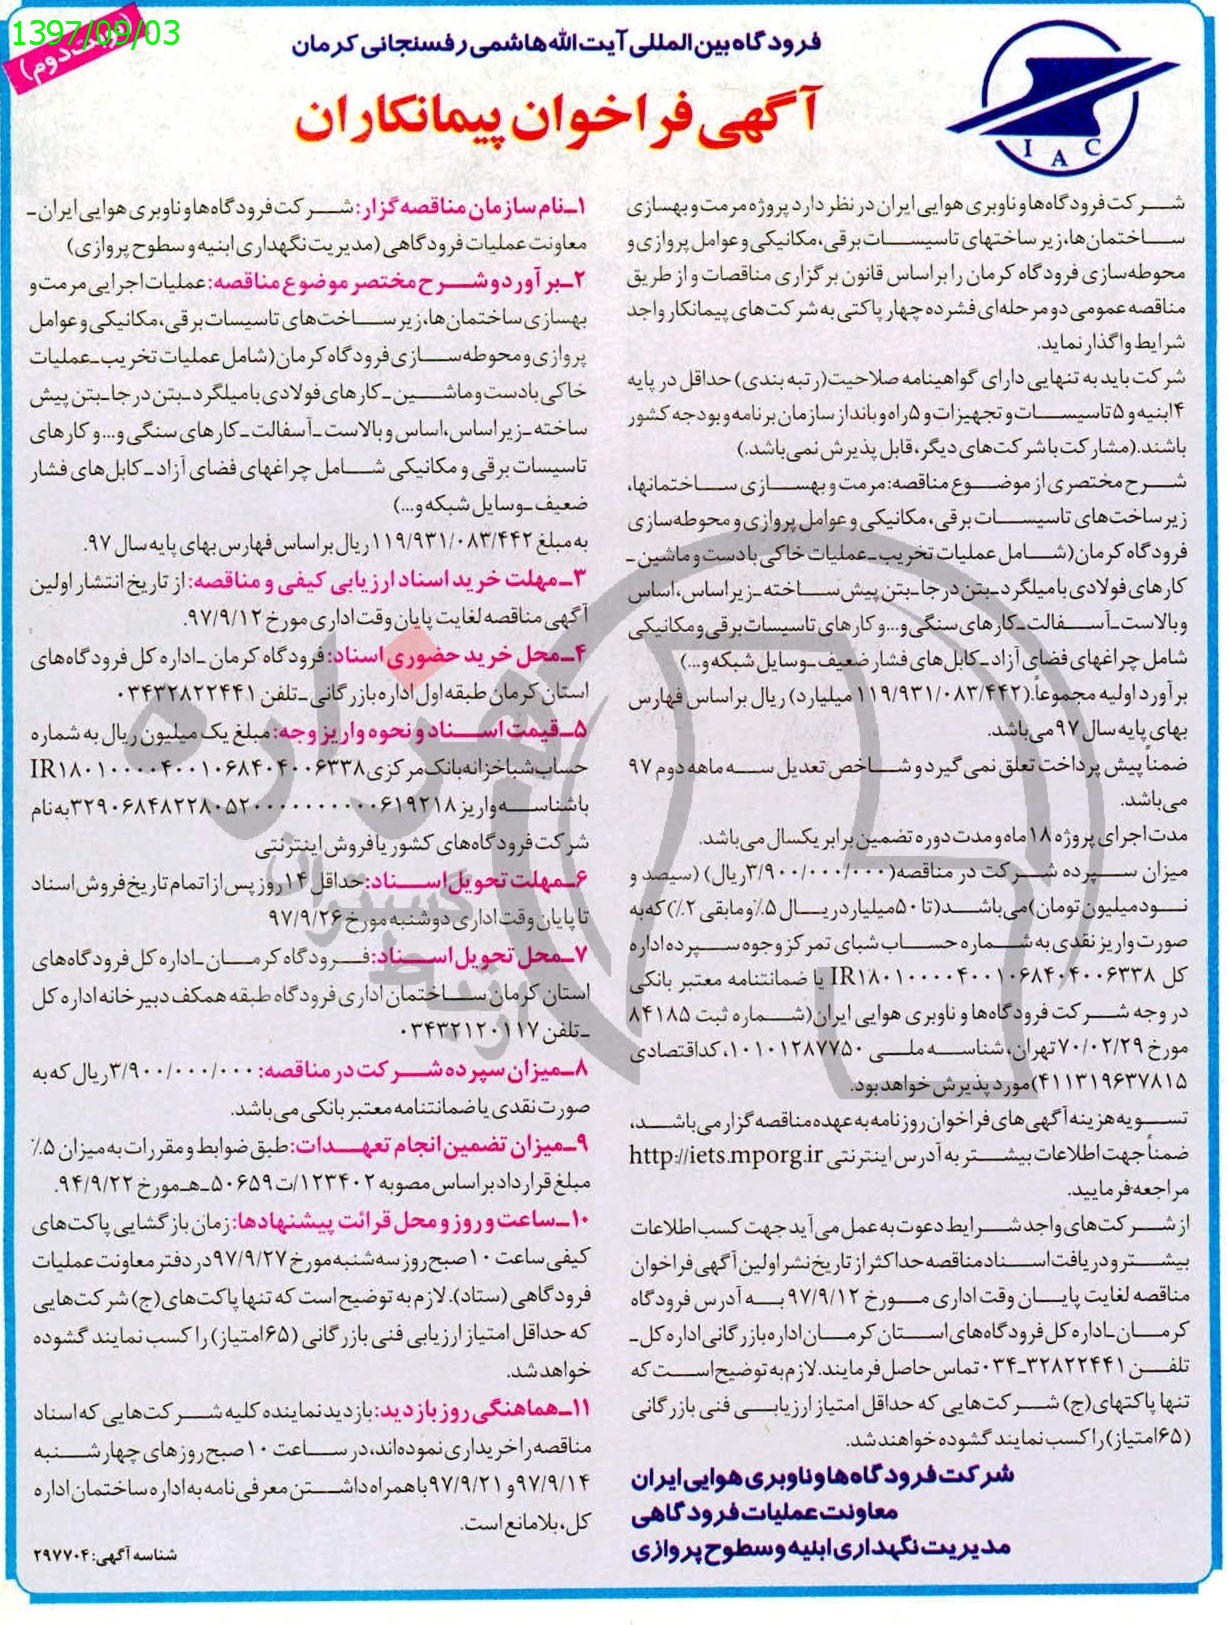 1397/09/03
(نوبت دوم)
فرودگاه بین المللی آیت الله هاشمی رفسنجانی کرمان
آگهی فراخوان پیمانکاران
IAC
شرکت فرودگاه‌ها و ناوبری هوایی ایران در نظر دارد پروژه مرمت و بهسازی
ساختمان‌ها، زیرساختهای تاسیسات برقی، مکانیکی و عوامل پروازی و
محوطه‌سازی فرودگاه کرمان را براساس قانون برگزاری مناقصات و از طریق
مناقصه عمومی دو مرحله‌ای فشرده چهار پاکتی به شرکت‌های پیمانکار واجد
شرایط واگذار نماید.
شرکت باید به تنهایی دارای گواهینامه صلاحیت (رتبه بندی) حداقل در پایه
۴ ابنیه و ۵ تاسیسات و تجهیزات و ۵ راه و باند از سازمان برنامه و بودجه کشور
باشند. (مشارکت با شرکت‌های دیگر، قابل پذیرش نمی‌باشد.)
شرح مختصری از موضوع مناقصه: مرمت و بهسازی ساختمانها،
زیرساخت‌های تاسیسات برقی، مکانیکی و عوامل پروازی و محوطه‌سازی
فرودگاه کرمان (شامل عملیات تخریب ـ عملیات خاکی با دست و ماشین ـ
کارهای فولادی با میلگرد ـ بتن در جا ـ بتن پیش ساخته ـ زیراساس، اساس
و بالاست ـ آسفالت ـ کارهای سنگی و... و کارهای تاسیسات برقی و مکانیکی
شامل چراغهای فضای آزاد ـ کابل‌های فشار ضعیف ـ وسایل شبکه و...)
برآورد اولیه مجموعاً. (۱۱۹/۹۳۱/۰۸۳/۴۴۲ میلیارد) ریال بر اساس فهارس
بهای پایه سال ۹۷ می‌باشد.
ضمناً پیش پرداخت تعلق نمی گیرد و شاخص تعدیل سه ماهه دوم ۹۷
می‌باشد.
مدت اجرای پروژه ۱۸ ماه و مدت دوره تضمین برابر یکسال می‌باشد.
میزان سپرده شرکت در مناقصه (۳/۹۰۰/۰۰۰/۰۰۰ ریال) (سیصد و
نود میلیون تومان) می‌باشد (تا ۵۰ میلیارد ریال ۵٪ و مابقی ۲٪) که به
صورت واریز نقدی به شماره حساب شبای تمرکز وجوه سپرده اداره
کل IR۱۸۰۱۰۰۰۰۴۰۰۱۰۶۸۴۰۴۰۰۶۳۳۸ یا ضمانتنامه معتبر بانکی
در وجه شرکت فرودگاه‌ها و ناوبری هوایی ایران (شماره ثبت ۸۴۱۸۵
مورخ ۷۰/۰۲/۲۹ تهران، شناسه ملی ۱۰۱۰۱۲۸۷۷۵۰، کد اقتصادی
۴۱۱۳۱۹۶۳۷۸۱۵) مورد پذیرش خواهد بود.
تسویه هزینه آگهی های فراخوان روزنامه به عهده مناقصه گزار می‌باشد،
ضمناً جهت اطلاعات بیشتر به آدرس اینترنتی http://iets.mporg.ir
مراجعه فرمایید.
از شرکت‌های واجد شرایط دعوت به عمل می آید جهت کسب اطلاعات
بیشتر و دریافت اسناد مناقصه حداکثر از تاریخ نشر اولین آگهی فراخوان
مناقصه لغایت پایان وقت اداری مورخ ۹۷/۹/۱۲ به آدرس فرودگاه
کرمان ـ اداره کل فرودگاه‌های استان کرمان اداره بازرگانی اداره کل ـ
تلفن ۳۲۸۲۲۴۴۱ـ۰۳۴ تماس حاصل فرمایند. لازم به توضیح است که
تنها پاکتهای (ج) شرکت‌هایی که حداقل امتیاز ارزیابی فنی بازرگانی
(۶۵ امتیاز) را کسب نمایند گشوده خواهند شد.
شرکت فرودگاه‌ها و ناوبری هوایی ایران
معاونت عملیات فرودگاهی
مدیریت نگهداری ابنیه و سطوح پروازی
۱ـ نام سازمان مناقصه گزار: شرکت فرودگاه‌ها و ناوبری هوایی ایران ـ
معاونت عملیات فرودگاهی (مدیریت نگهداری ابنیه و سطوح پروازی)
۲ـ برآورد و شرح مختصر موضوع مناقصه: عملیات اجرایی مرمت و
بهسازی ساختمان‌ها، زیرساخت‌های تاسیسات برقی، مکانیکی و عوامل
پروازی و محوطه‌سازی فرودگاه کرمان (شامل عملیات تخریب ـ عملیات
خاکی با دست و ماشین ـ کارهای فولادی با میلگرد ـ بتن در جا ـ بتن پیش
ساخته ـ زیراساس، اساس و بالاست ـ آسفالت ـ کارهای سنگی و... و کارهای
تاسیسات برقی و مکانیکی شامل چراغهای فضای آزاد ـ کابل‌های فشار
ضعیف ـ وسایل شبکه و...)
به مبلغ ۱۱۹/۹۳۱/۰۸۳/۴۴۲ ریال بر اساس فهارس بهای پایه سال ۹۷.
۳ـ مهلت خرید اسناد ارزیابی کیفی و مناقصه: از تاریخ انتشار اولین
آگهی مناقصه لغایت پایان وقت اداری مورخ ۹۷/۹/۱۲.
۴ـ محل خرید حضوری اسناد: فرودگاه کرمان ـ اداره کل فرودگاه‌های
استان کرمان طبقه اول اداره بازرگانی ـ تلفن ۰۳۴۳۲۸۲۲۴۴۱
۵ـ قیمت اسناد و نحوه واریز وجه: مبلغ یک میلیون ریال به شماره
حساب شبا خزانه بانک مرکزی IR۱۸۰۱۰۰۰۰۴۰۰۱۰۶۸۴۰۴۰۰۶۳۳۸
با شناسه واریز ۳۲۹۰۶۸۴۸۲۲۸۰۵۲۰۰۰۰۰۰۰۰۰۰۶۱۹۲۱۸ به نام
شرکت فرودگاه‌های کشور یا فروش اینترنتی
۶ـ مهلت تحویل اسناد: حداقل ۱۴ روز پس از اتمام تاریخ فروش اسناد
تا پایان وقت اداری دوشنبه مورخ ۹۷/۹/۲۶
۷ـ محل تحویل اسناد: فرودگاه کرمان ـ اداره کل فرودگاه‌های
استان کرمان ساختمان اداری فرودگاه طبقه همکف دبیرخانه اداره کل
ـ تلفن ۰۳۴۳۲۱۲۰۱۱۷
۸ـ میزان سپرده شرکت در مناقصه: ۳/۹۰۰/۰۰۰/۰۰۰ ریال که به
صورت نقدی یا ضمانتنامه معتبر بانکی می‌باشد.
۹ـ میزان تضمین انجام تعهدات: طبق ضوابط و مقررات به میزان ۵٪
مبلغ قرارداد بر اساس مصوبه ۱۲۳۴۰۲/ت۵۰۶۵۹ـ هـ مورخ ۹۴/۹/۲۲.
۱۰ـ ساعت و روز و محل قرائت پیشنهادها: زمان بازگشایی پاکت‌های
کیفی ساعت ۱۰ صبح روز سه شنبه مورخ ۹۷/۹/۲۷ در دفتر معاونت عملیات
فرودگاهی (ستاد). لازم به توضیح است که تنها پاکت‌های (ج) شرکت‌هایی
که حداقل امتیاز ارزیابی فنی بازرگانی (۶۵ امتیاز) را کسب نمایند گشوده
خواهد شد.
۱۱ـ هماهنگی روز بازدید: بازدید نماینده کلیه شرکت‌هایی که اسناد
مناقصه را خریداری نموده‌اند، در ساعت ۱۰ صبح روزهای چهارشنبه
۹۷/۹/۱۴ و ۹۷/۹/۲۱ با همراه داشتن معرفی نامه به اداره ساختمان اداره
کل، بلامانع است.
شناسه آگهی: ۲۹۷۷۰۴